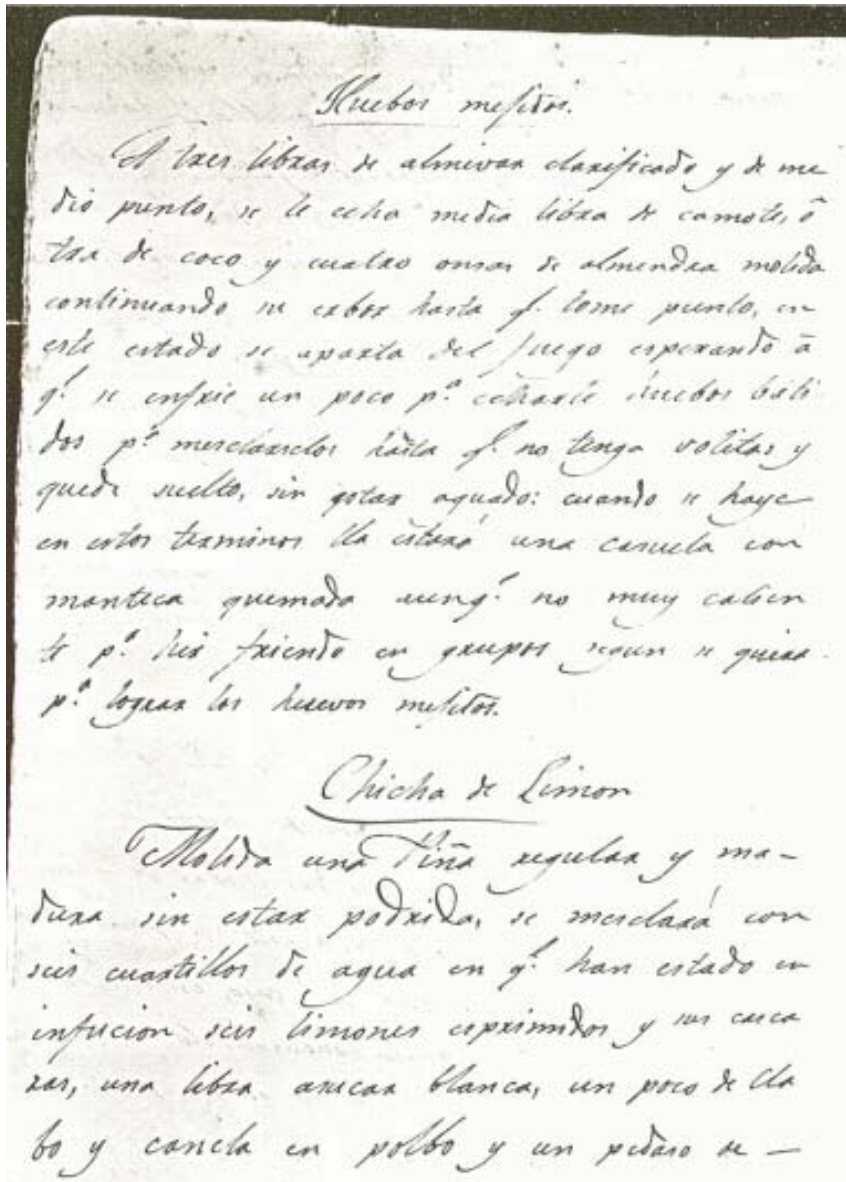 Huebos mejidos.
A tres libras de almivar clarificado y de me
dio punto, se le echa media libra de camote, ô
tra de coco y cuatro onsas de almendra molida
continuando su erbor hasta q.e tome punto, en
este estado se aparta del fuego esperando â
q.e se enfrie un poco p.a echarle huebos bati
dos p.a mesclarselos hasta q.e no tenga volitas y
quede suelto, sin estar aguado: cuando se haye
en estos terminos lla estará una casuela con
manteca quemada aunq.e no muy calien
te p.a hir friendo en grupos segun se quiera
p.a lograr los huevos mejidos.
Chicha de Limon
Molida una Piña regular y ma-
dura sin estar podrida, se mesclará con
seis cuartillos de agua en q.e han estado en
infucion seis limones esprimidos y sus casca
ras, una libra asucar blanca, un poco de cla
bo y canela en polbo y un pedaso de -